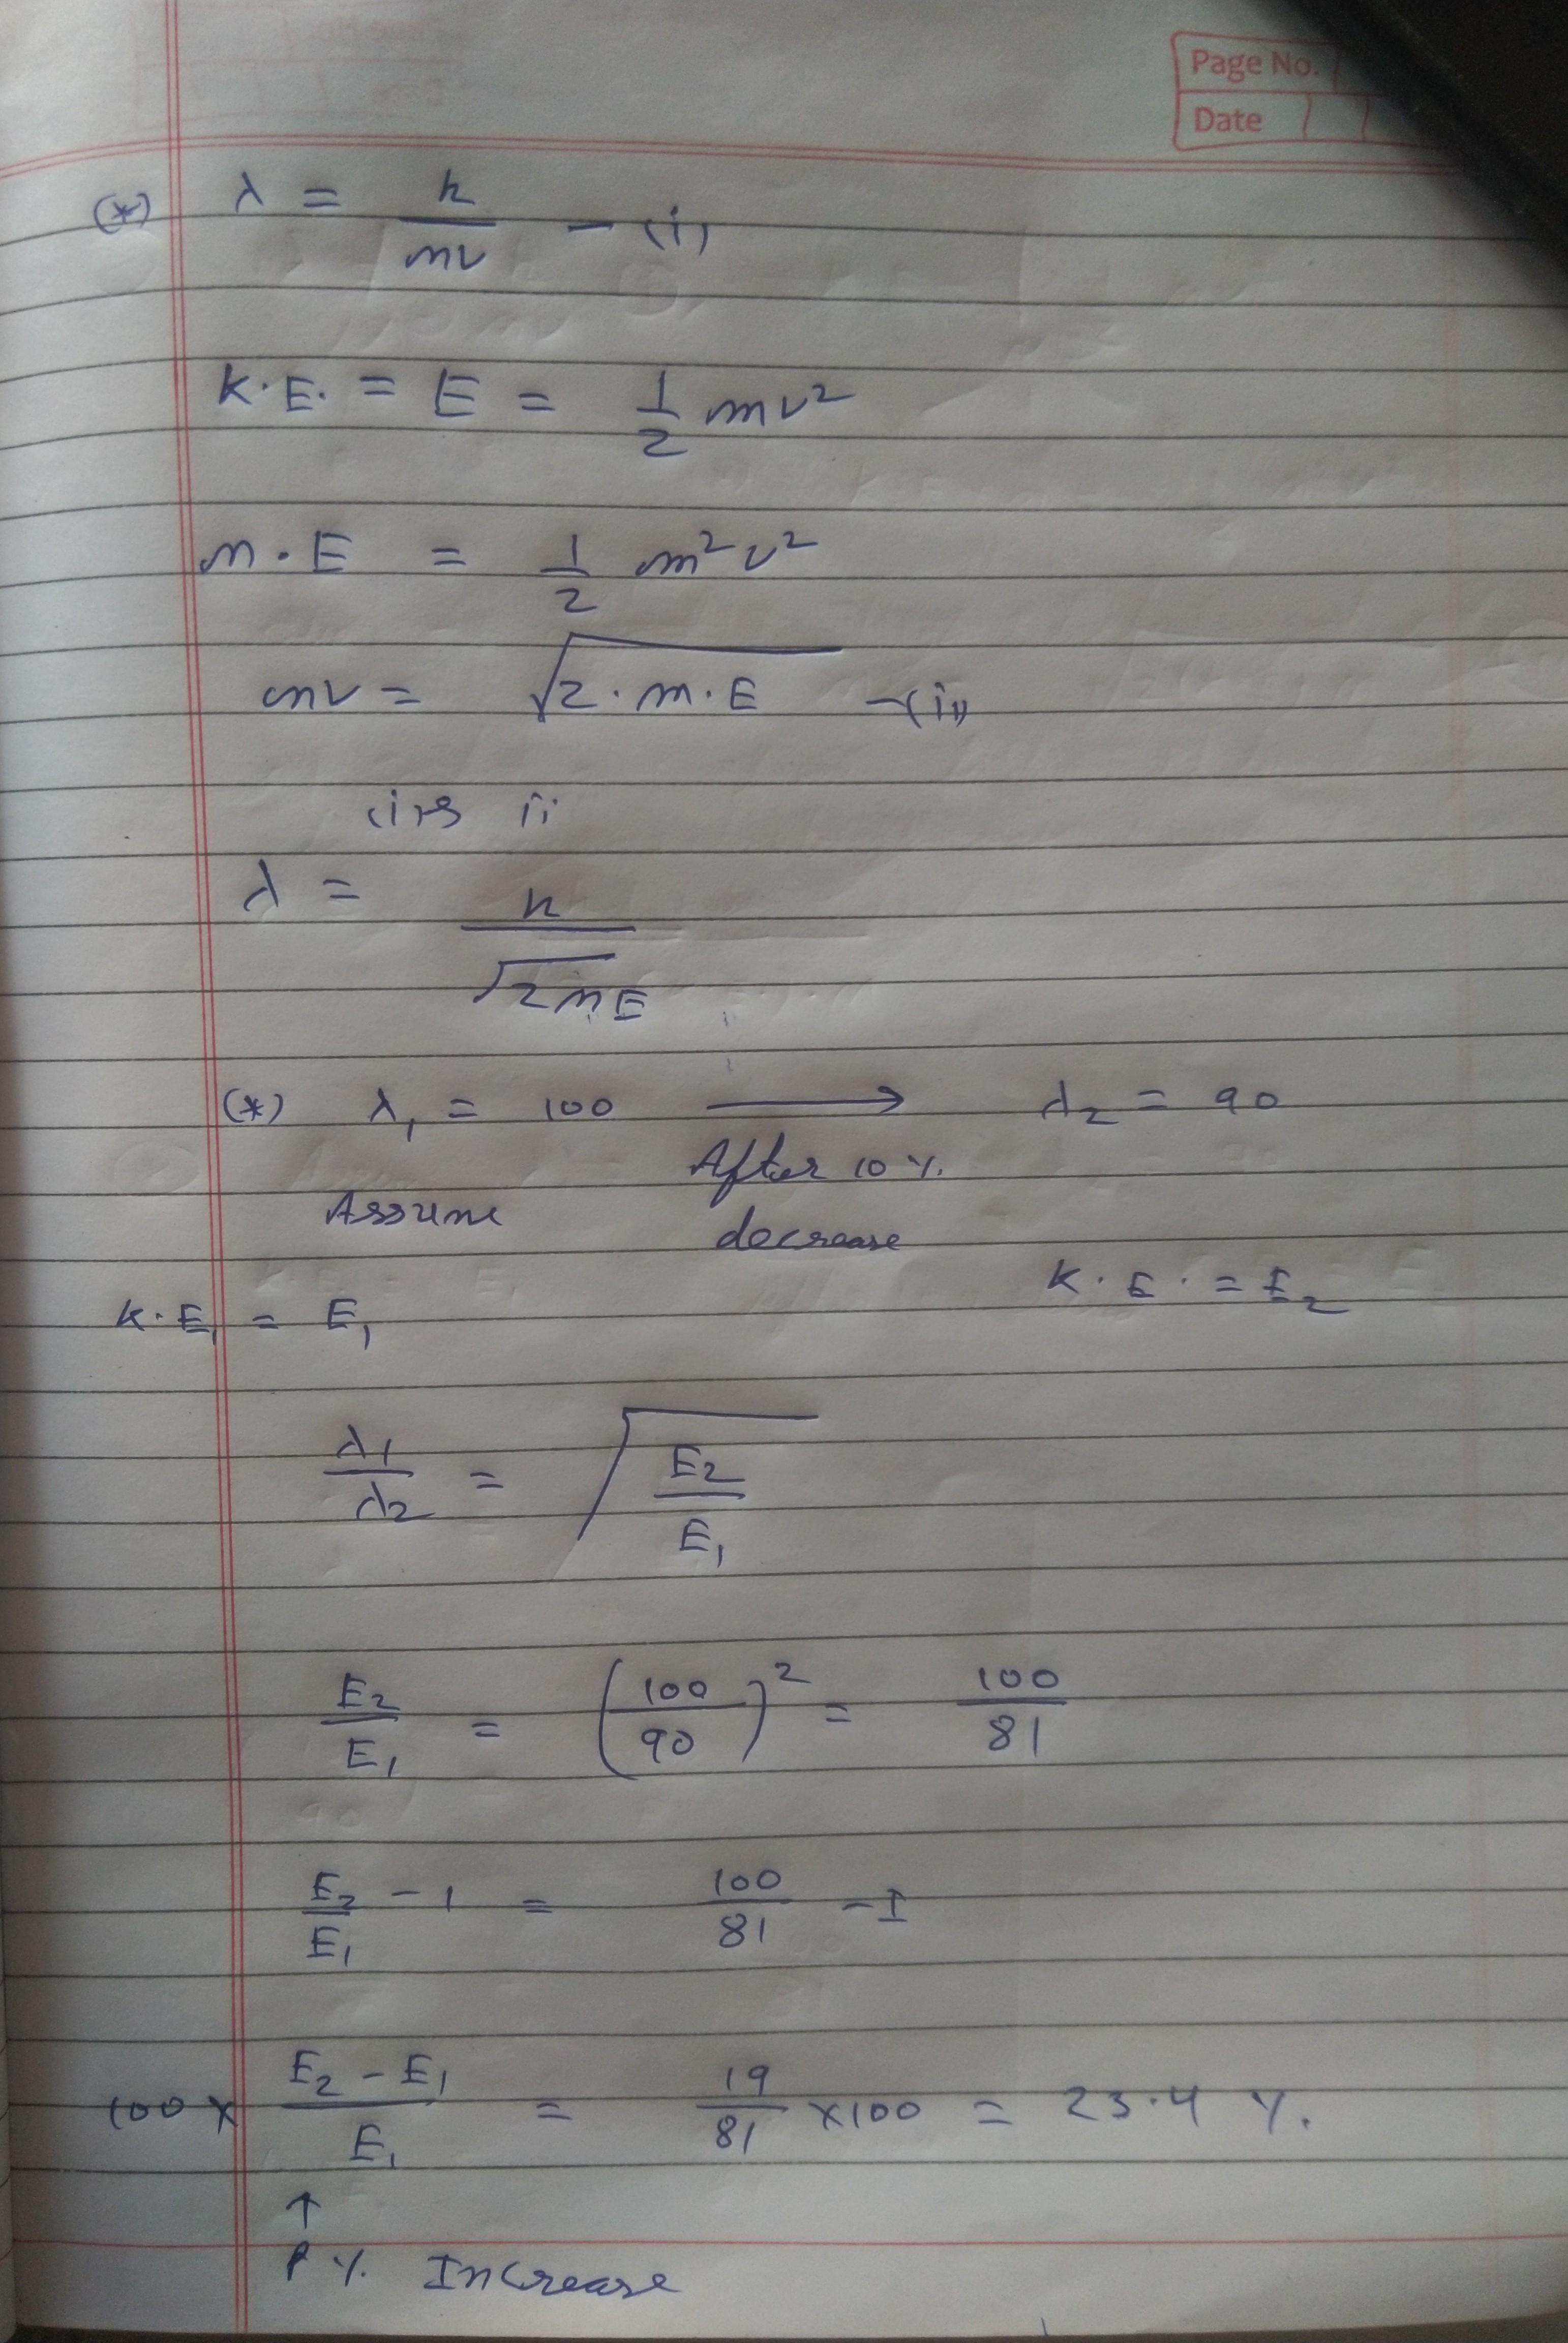 Page No.
Date
(*) λ = h/mv - (i)
K.E. = E = 1/2 mv²
m.E = 1/2 m²v²
mv = √2.m.E - (ii)
(i) & ii
λ = h/√2mE
(*) λ₁ = 100 → λ₂ = 90
After 10 %.
Assume
decrease
K.E. = E₂
K.E₁ = E₁
λ₁/λ₂ = √E₂/E₁
E₂/E₁ = (100/90)² = 100/81
E₂/E₁ - 1 = 100/81 - 1
100 × E₂ - E₁/E₁ = 19/81 ×100 = 23.4 %.
↑
%. Increase